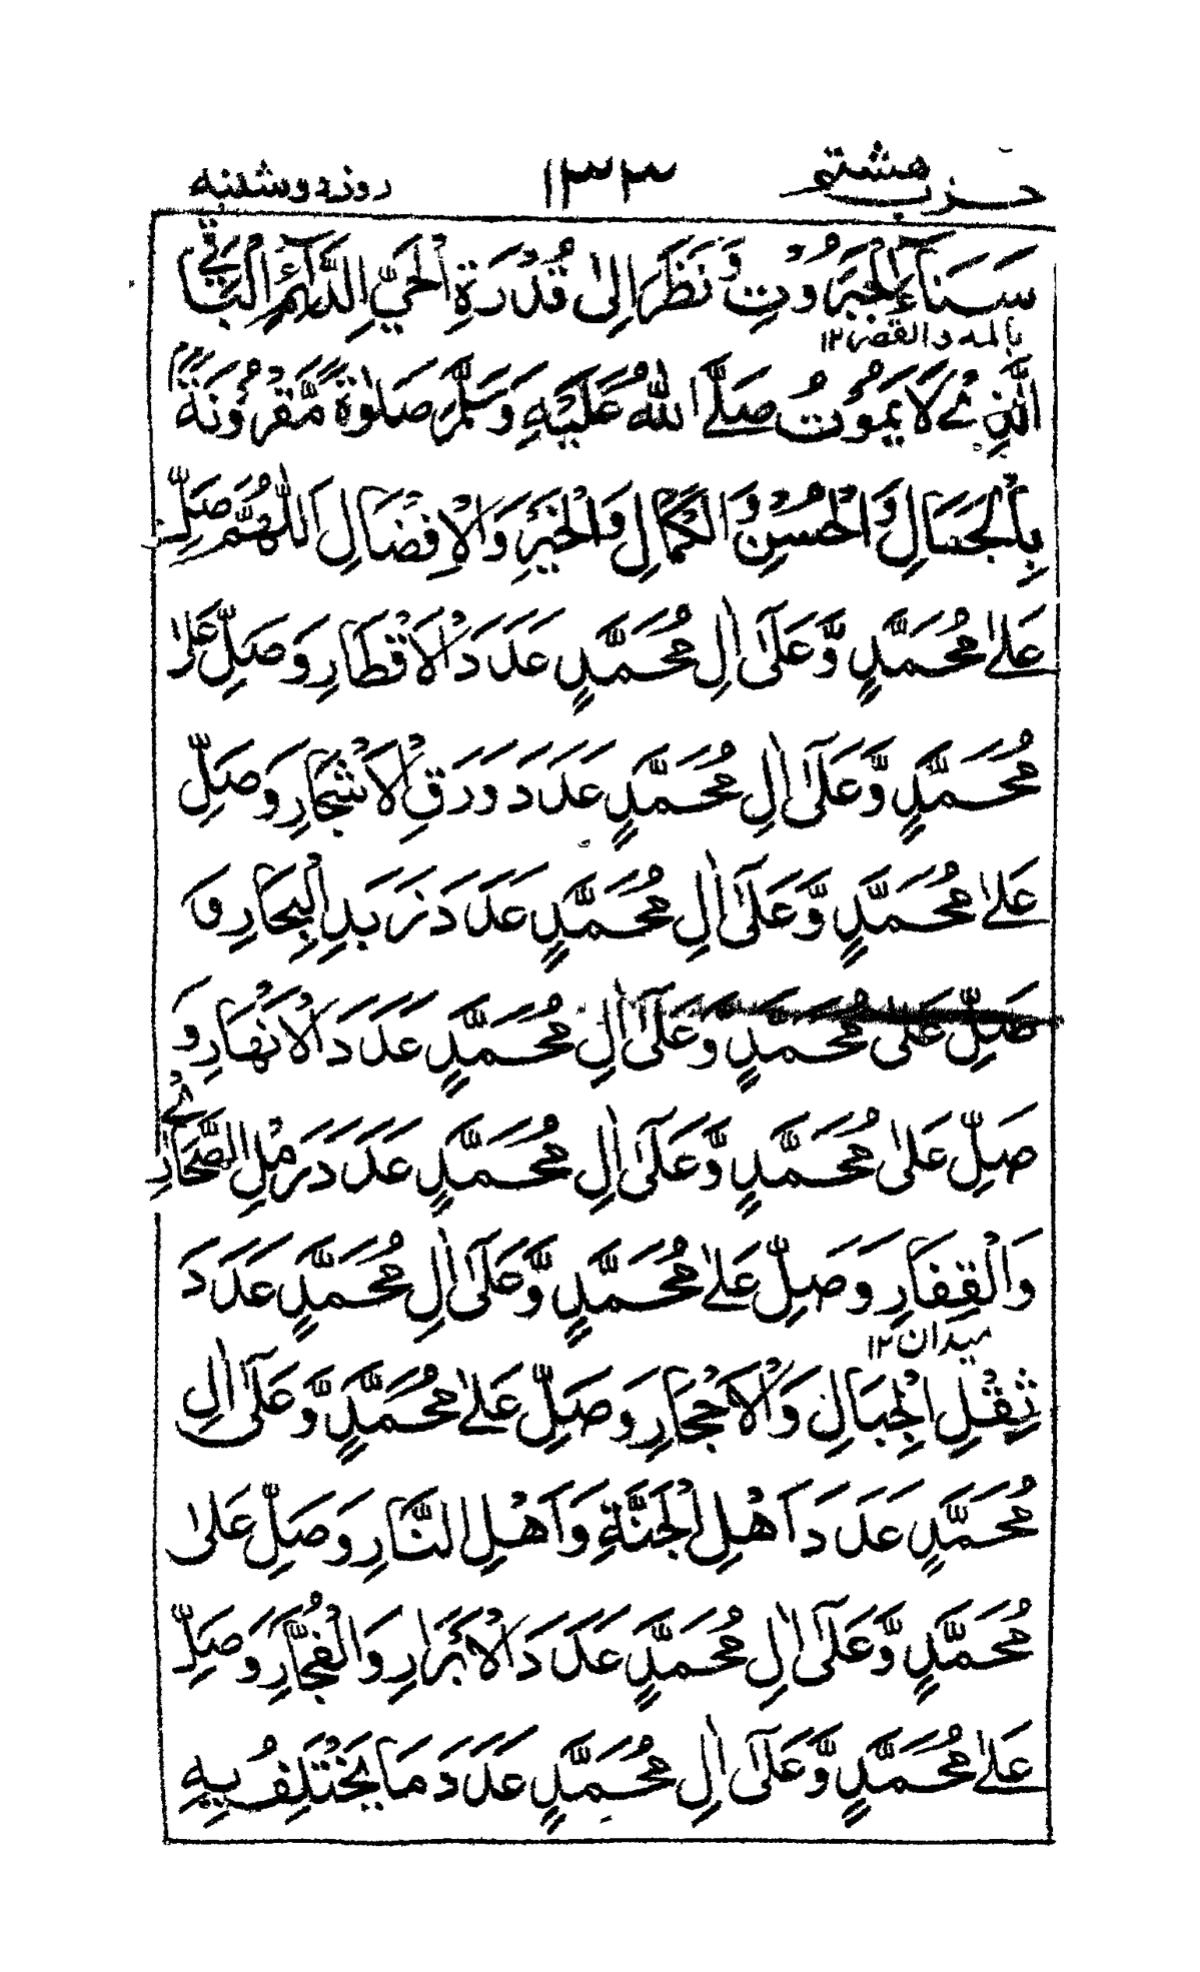 حزب هشتم ۱۳۳ روز دوشنبه
سَنَاءَ الْجَبَرُوْتِ وَنَظَرَ اِلٰى قُدْرَةِ الْحَيِّ الدَّآئِمِ الْبَاقِي
بالمد والقصر ۱۲
الَّذِيْ لَا يَمُوْتُ صَلَّى اللّٰهُ عَلَيْهِ وَسَلَّمَ صَلٰوةً مَّقْرُوْنَةً
بِالْجَمَالِ وَالْحُسْنِ وَالْكَمَالِ وَالْخَيْرِ وَالْاِفْضَالِ اَللّٰهُمَّ صَلِّ
عَلٰى مُحَمَّدٍ وَّعَلٰٓى اٰلِ مُحَمَّدٍ عَدَدَ الْاَقْطَارِ وَصَلِّ عَلٰى
مُحَمَّدٍ وَّعَلٰٓى اٰلِ مُحَمَّدٍ عَدَدَ وَرَقِ الْاَشْجَارِ وَصَلِّ
عَلٰى مُحَمَّدٍ وَّعَلٰٓى اٰلِ مُحَمَّدٍ عَدَدَ زَبَدِ الْبِحَارِ وَ
صَلِّ عَلٰى مُحَمَّدٍ وَّعَلٰٓى اٰلِ مُحَمَّدٍ عَدَدَ الْاَنْهَارِ وَ
صَلِّ عَلٰى مُحَمَّدٍ وَّعَلٰٓى اٰلِ مُحَمَّدٍ عَدَدَ رَمْلِ الصَّحَارِيْ
وَالْقِفَارِ وَصَلِّ عَلٰى مُحَمَّدٍ وَّعَلٰٓى اٰلِ مُحَمَّدٍ عَدَدَ
میدان ۱۲
ثِقْلِ الْجِبَالِ وَالْاَحْجَارِ وَصَلِّ عَلٰى مُحَمَّدٍ وَّعَلٰٓى اٰلِ
مُحَمَّدٍ عَدَدَ اَهْلِ الْجَنَّةِ وَاَهْلِ النَّارِ وَصَلِّ عَلٰى
مُحَمَّدٍ وَّعَلٰٓى اٰلِ مُحَمَّدٍ عَدَدَ الْاَبْرَارِ وَالْفُجَّارِ وَصَلِّ
عَلٰى مُحَمَّدٍ وَّعَلٰٓى اٰلِ مُحَمَّدٍ عَدَدَ مَا يَخْتَلِفُ بِهِ